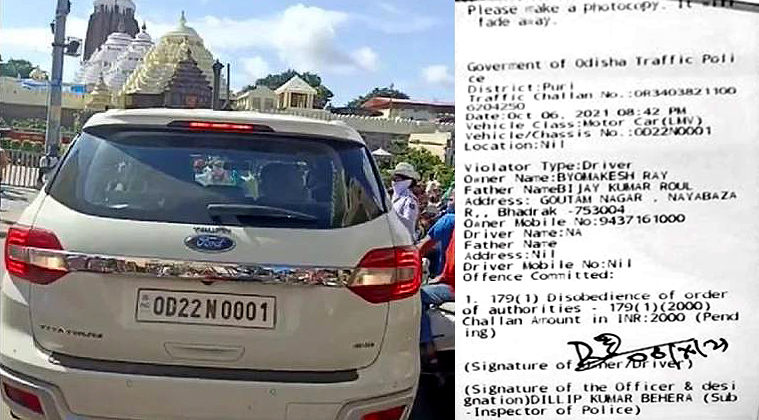 Ford
OD22N0001
Please make a photocopy. It will
fade away.
Goverment of Odisha Traffic Poli
ce
District:Puri
Traffic Challan No.:OR3403821100
6204250
Date:Oct 06, 2021 08:42 PM
Vehicle Class:Motor Car(LMV)
Vehicle/Chassis No.:OD22N0001
Location:Nil
Violator Type:Driver
Owner Name:BYOMAKESH RAY
Father NameBIJAY KUMAR ROUL
Address: GOUTAM NAGAR , NAYABAZA
R,, Bhadrak -753004
Owner Mobile No:9437161000
Driver Name:NA
Father Name
Address:Nil
Driver Mobile No:Nil
Offence Committed:
1. 179(1) Disobedience of order
of authorities - 179(1)(2000)
Challan Amount in INR:2000 (Pend
ing)
(Signature of Owner/Driver)
(Signature of the Officer & desi
gnation)DILLIP KUMAR BEHERA (Sub
-Inspector of Police)